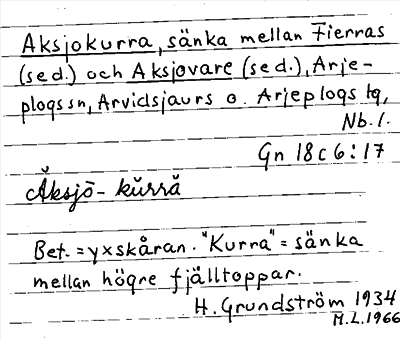 Aksjokurra, sänka mellan Fierras
(se d.) och Aksjovare (se d.), Arje-
plogs sn, Arvidsjaurs o. Arjeplogs tg,
Nb. l.
Gn 18 c 6:17
Ăksjō - kŭrră
Bet. = yxskåran. "Kurra" = sänka
mellan högre fjälltoppar.
H. Grundström 1934
M.L. 1966